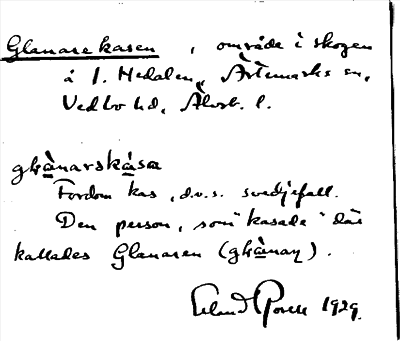 Glanarekasen, område i skogen
å l. Hedalen, Ärtemarks sn,
Vedbo hd, Älvsb. l.
glànarskàsa
Fordom kas, d.v.s. svedjefall.
Den person, som "kasade" där
kallades Glanaren (glànaṛ).
Erland Rosell 1929.